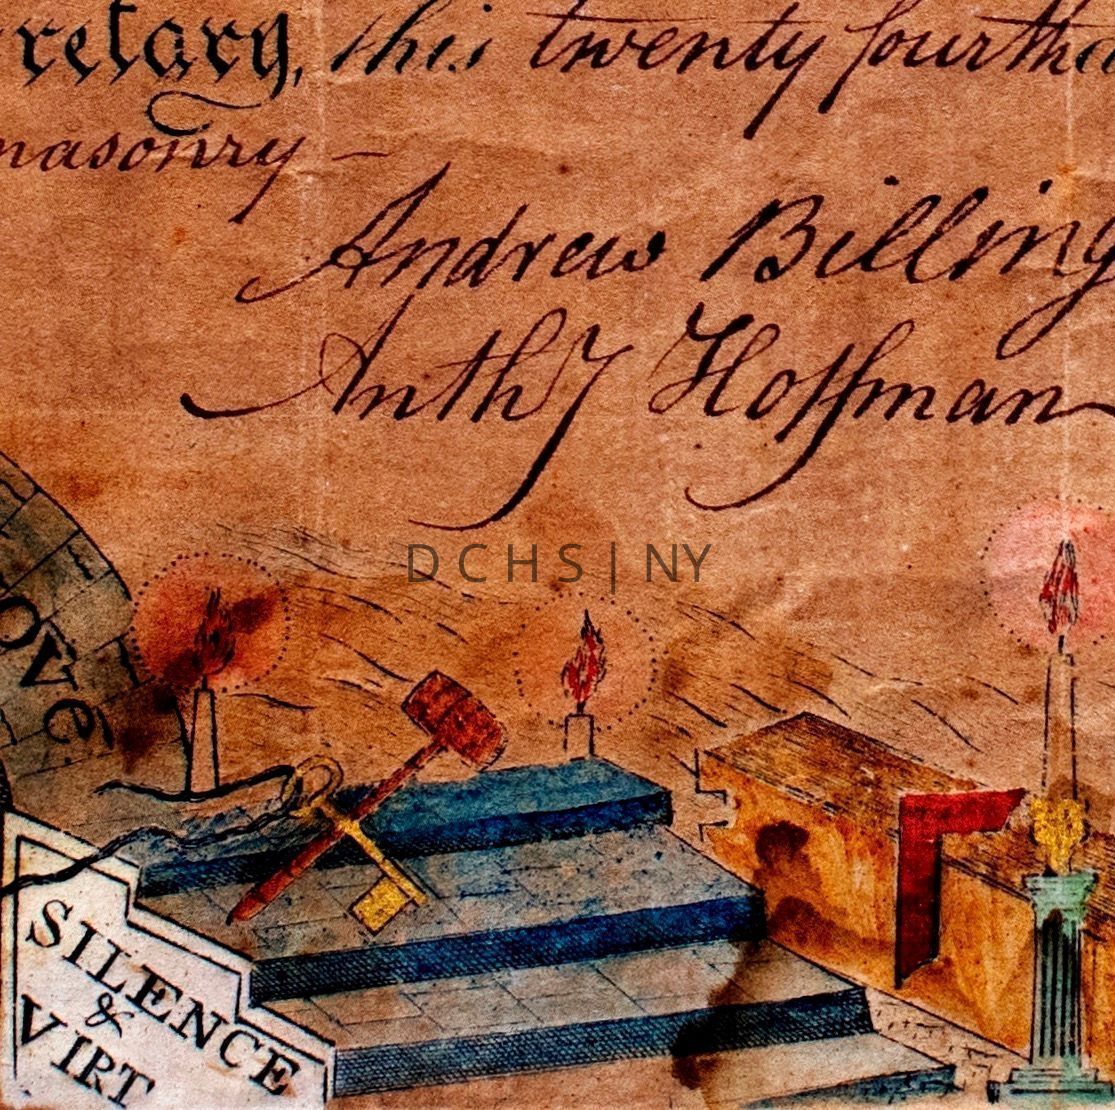 retary, this twenty fourth
masonry —
Andrew Billing
Anthy Hoffman
DCHS|NY
Love
SILENCE
&
VIRT